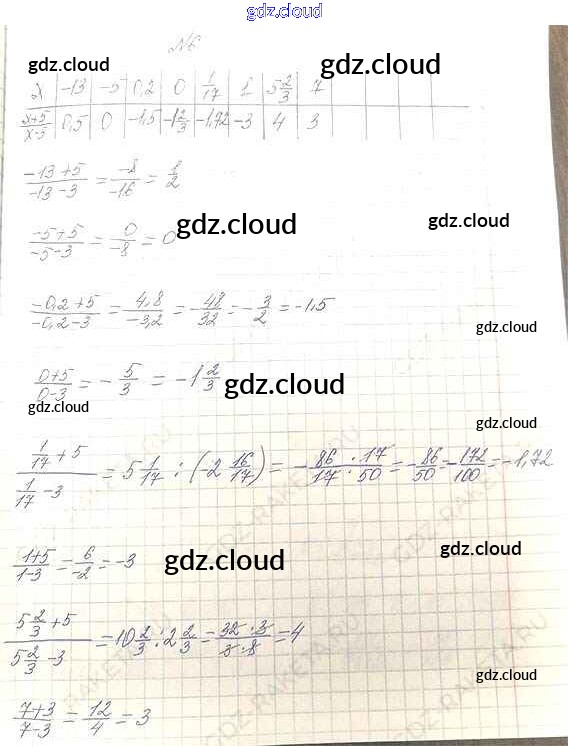 gdz.cloud
№6
gdz.cloud gdz.cloud
x | -13 | -5 | 0,2 | 0 | 1/17 | 1 | 5 2/3 | 7
(x+5)/(x-3) | 0,5 | 0 | -1,5 | -1 2/3 | -1,72 | -3 | 4 | 3
(-13+5)/(-13-3) = -8/-16 = 1/2
gdz.cloud gdz.cloud
(-5+5)/(-5-3) = 0/-8 = 0
(-0,2+5)/(-0,2-3) = 4,8/-3,2 = -48/32 = -3/2 = -1,5
gdz.cloud
(0+5)/(0-3) = -5/3 = -1 2/3
gdz.cloud gdz.cloud
(1/17+5)/(1/17-3) = 5 1/17 : (-2 16/17) = -(86·17)/(17·50) = -86/50 = -172/100 = -1,72
GDZ-RAKETA.RU
gdz.cloud
(1+5)/(1-3) = 6/-2 = -3
gdz.cloud
(5 2/3+5)/(5 2/3-3) = 10 2/3 : 2 2/3 = (32·3)/(3·8) = 4
gdz.cloud gdz.cloud
(7+3)/(7-3) = 12/4 = 3
gdz.cloud